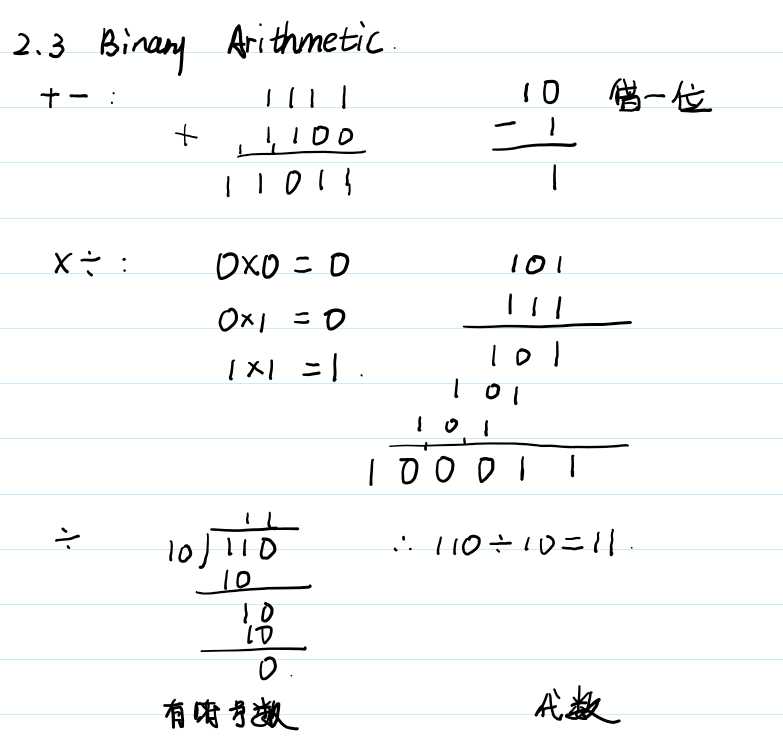 2.3 Binary Arithmetic.
+ − : 1111 10 借一位
+ 1100 − 1
11011 1
× ÷ : 0×0 = 0 101
0×1 = 0 111
1×1 = 1. 101
101
101
100011
11
÷ 10)110 ∴ 110÷10=11.
10
10
10
0.
有符号数 代数